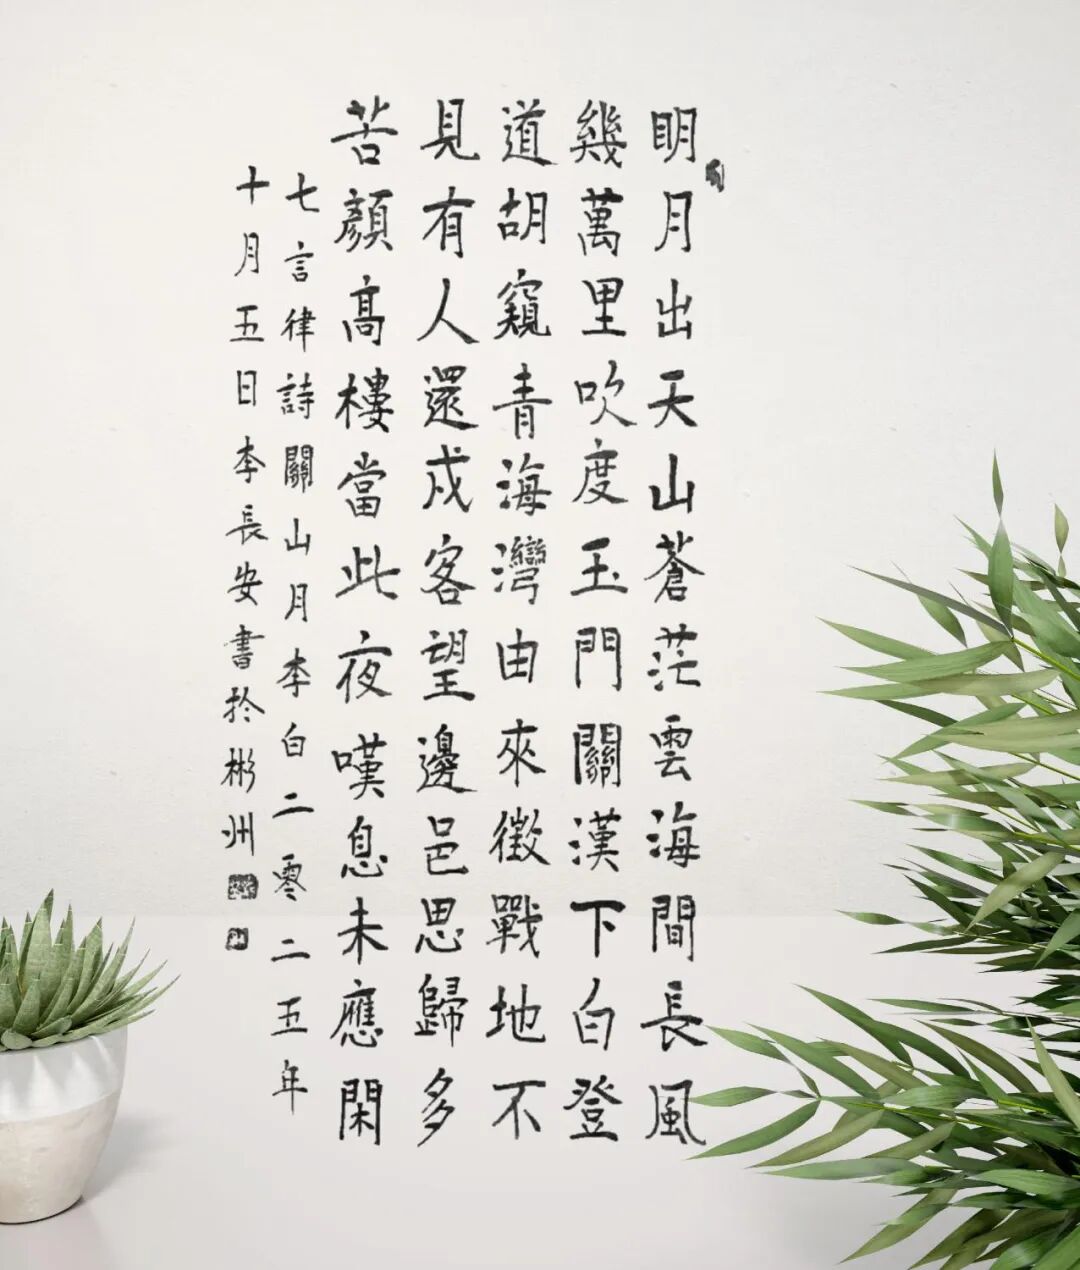 明月出天山蒼茫雲海間長風
幾萬里吹度玉門關漢下白登
道胡窺青海灣由來徵戰地不
見有人還戍客望邊邑思歸多
苦顏高樓當此夜嘆息未應閑
七言律詩關山月李白二零二五年
十月五日李長安書於彬州